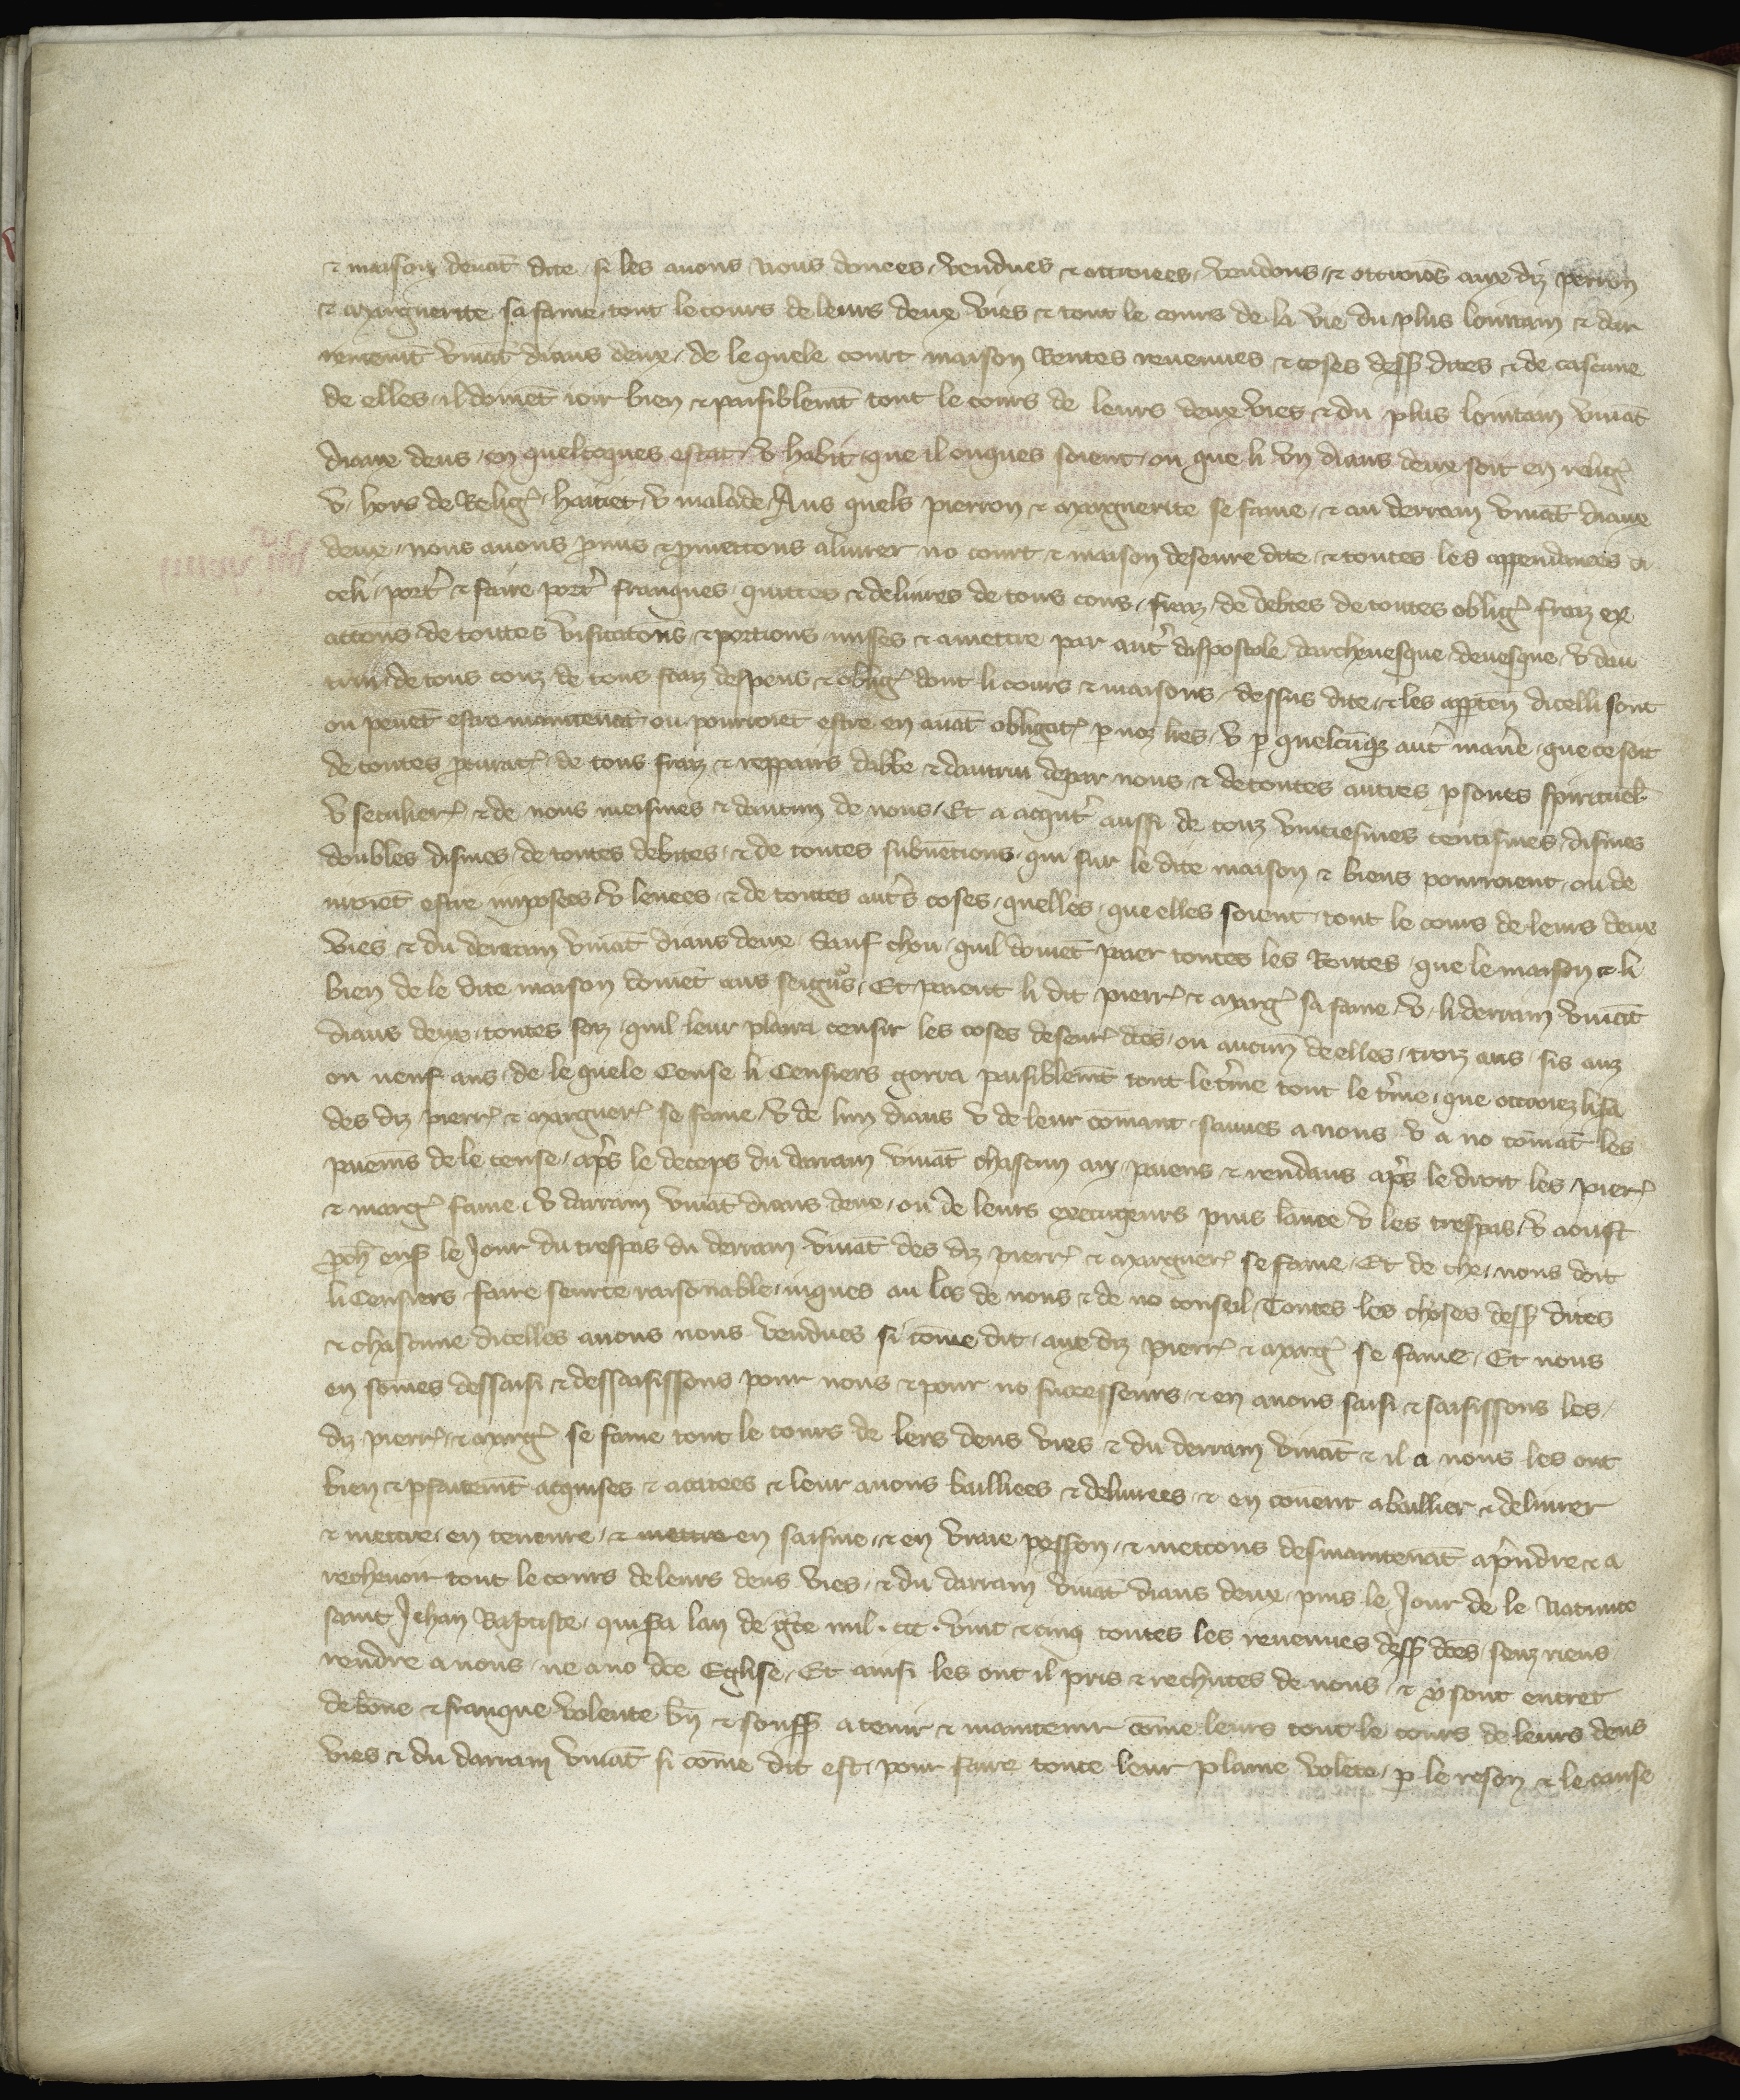 ⁊ maison deuāt dite. si les auons nous donees. vendues ⁊ ottroiees. vendons ⁊ ottroiōs aux dis pierron
⁊ Marguerite sa fame tout le cours de leurs deux vies ⁊ tout le cours de la vie du plus lointain ⁊ dar
renemt viuāt diaus deux. de le quele court maison Rentes reuenues ⁊ coses dess dites ⁊ de cascune
de elles. il doiuēt ioir bien ⁊ paisiblemt tout le cours de leurs deux vies ⁊ du plus lointain viuāt
diaux deus. en quelcoques estat. v habit que il onques soient. ou que li vn diaus deux soit en relig
v hors de Relig. haitiet. v malade. Aus quels pierron ⁊ Marguerite se fame. ⁊ au derrain viuāt diaux
deux. nous auons pmis ⁊ pmettons aliurer no court ⁊ maison deseure dite ⁊ toutes les appendances di
celi. port ⁊ faire port franques. quittes ⁊ deliures de tous cous. fraiz. de debtes de toutes oblig fraiz ex
actions de toutes visitatons ⁊ portions mises ⁊ amettre par aut dapostole darcheuesque deuesque. v dau
trui. de tous couz. de tous fraiz despens ⁊ oblig dont li cours ⁊ maisons. dessus dite. ⁊ les apptēn dicelli sont
ou peuēt estre maintenāt ou pourroiēt estre en auāt obligat. p noz lres. v p quelcūqz aut maniē. que ce soit
de toutes pcurat. de tous fraiz ⁊ reppairs dabbe ⁊ dautrui depar nous ⁊ de toutes autres psones spirituel.
v seculier. ⁊ de nous meismes ⁊ daucun de nous. Et a acquit aussi de touz vintiesmes centismes. dismes
doubles dismes. de toutes debites. ⁊ de toutes subuētions. qui sur le dite maison ⁊ biens pourroient. ou de
uroiēt estre imposees. v leuees. ⁊ de toutes auts coses. quelles. que elles soient. tout le cours de leurs deux
vies ⁊ du derrain viuāt diaus deux. Sauf chou. quil doiuēt paier toutes les Rentes. que le maison ⁊ li
bien de le dite maison doiuēt aus seigns. Et paient li dit pierr. ⁊ Marg sa fame. v. li derrain viuāt
diaus deux. toutes foiz. quil leur plaira censir les coses deseur dtēs. ou aucun de elles. trois ans. sis anz
ou neuf ans. de le quele Cense li Censiers gorra paisiblemt tout le tme tout le tme. que ottroiez li sā
des dis pierr. ⁊ Marguer. se fame. v de lun diaus v de leur cōmant. sauues a nous. v a no cōmāt les
paiemns de le cense. aps le deceps du darrain viuāt chascun an paiens ⁊ rendans aps le droit les pierr.
⁊ marg fame. v darrain viuāt diaus deux. ou de leurs executeurs puis lanee v les trespas. v aoust
pch ens le Jour du trespas du derrain viuāt des dis pierr. ⁊ Marguer. se fame. Et de che. nous doit
li Censiers faire seurte raisonable. iuques au los de nous ⁊ de no conseil. Toutes les choses dess dites
⁊ chascune dicelles auons nous vendues si cōme dit. aux dis pierr. ⁊ Marg se fame. Et nous
en sōmes dessaisi ⁊ dessaisissons pour nous ⁊ pour no successeurs. ⁊ en auons saisi ⁊ saisissons les.
dis pierr. ⁊ Marg se fame tout le cours de lers deus vies ⁊ du derrain viuāt ⁊ il a nous les ont
bien ⁊ pfaitemt acquises ⁊ acatees ⁊ leur auons baillees ⁊ deliurees. ⁊ en couent abaillier ⁊ deliurer
⁊ mettre. en teneure. ⁊ mettre en saisine. ⁊ en vraie posson. ⁊ mettons desmaintenāt apndre ⁊ a
recheuoir tout le cours deleurs deus vies. ⁊ du darrain viuāt diaus deux. puis le Jour de le Natiuite
saint Jehan Baptiste. qui fu lan de gce mil. ccc. vint ⁊ cinq toutes les reuenues dess dtēs senz riens
rendre a nous. ne a no dte Eglise. Et ainsi les ont il pris ⁊ rechutes de nous. ⁊ y sont entret
de bone ⁊ franque volente bn ⁊ souff. atenir ⁊ maintenir cōme leurs tout le cours de leurs deus
vies ⁊ du darrain viuāt si cōme dit est. pour faire toute leur plaine volēte. p le reson ⁊ le cause